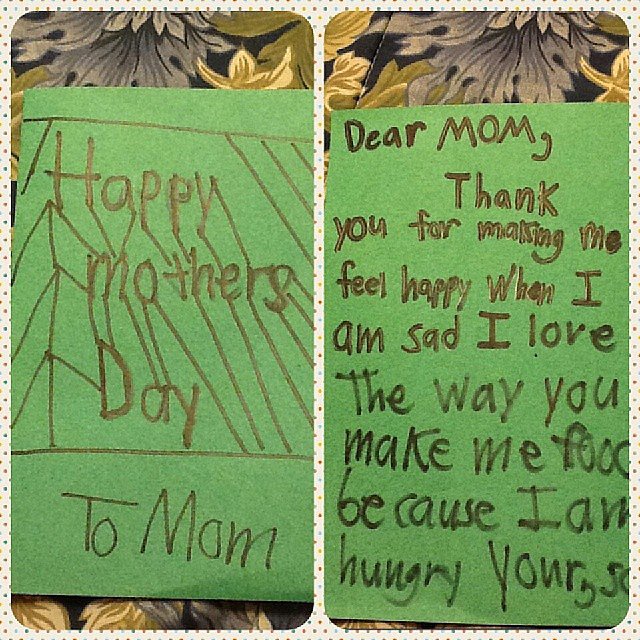 Happy
mothers
Day
To Mom
Dear MOM,
Thank
you for making me
feel happy When I
am sad I love
The way you
make me foo
because I am
hungry Your, so